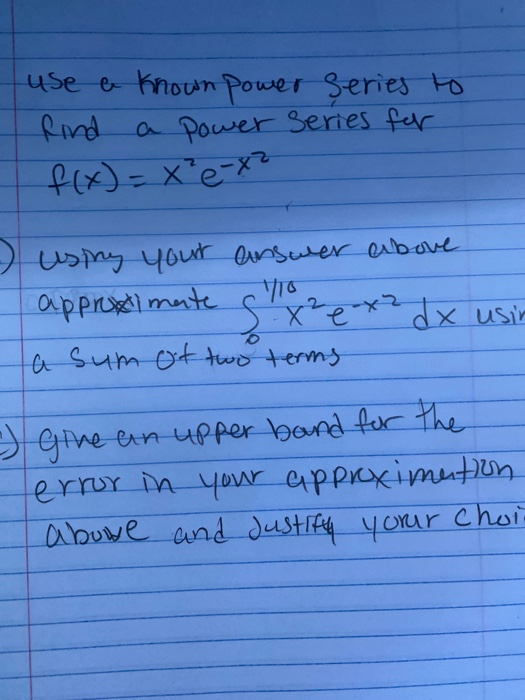 use a known power series to
find a power series for
f(x) = x²e^-x²
) using your answer above
approximate ∫₀^1/10 x²e^-x² dx usin
a sum of two terms
) give an upper band for the
error in your approximation
above and Justify your choi